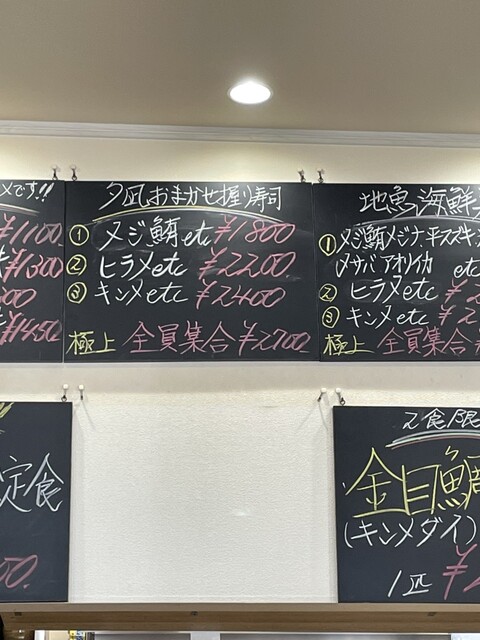 メです!!
¥1100
¥1300
00
¥1450
夕凪おまかせ握り寿司
① メジ鮪etc ¥1800
② ヒラメetc ¥2200.
③ キンメetc ¥2400
極上 全員集合 ¥2700
地魚海鮮
① メジ鮪メジナ・平スズキ
〆サバアオリイカ etc
② ヒラメetc ¥2
③ キンメetc ¥2
極上 全員集合
定食
00.
2食限
金目鯛
(キンメダイ)
1匹 ¥